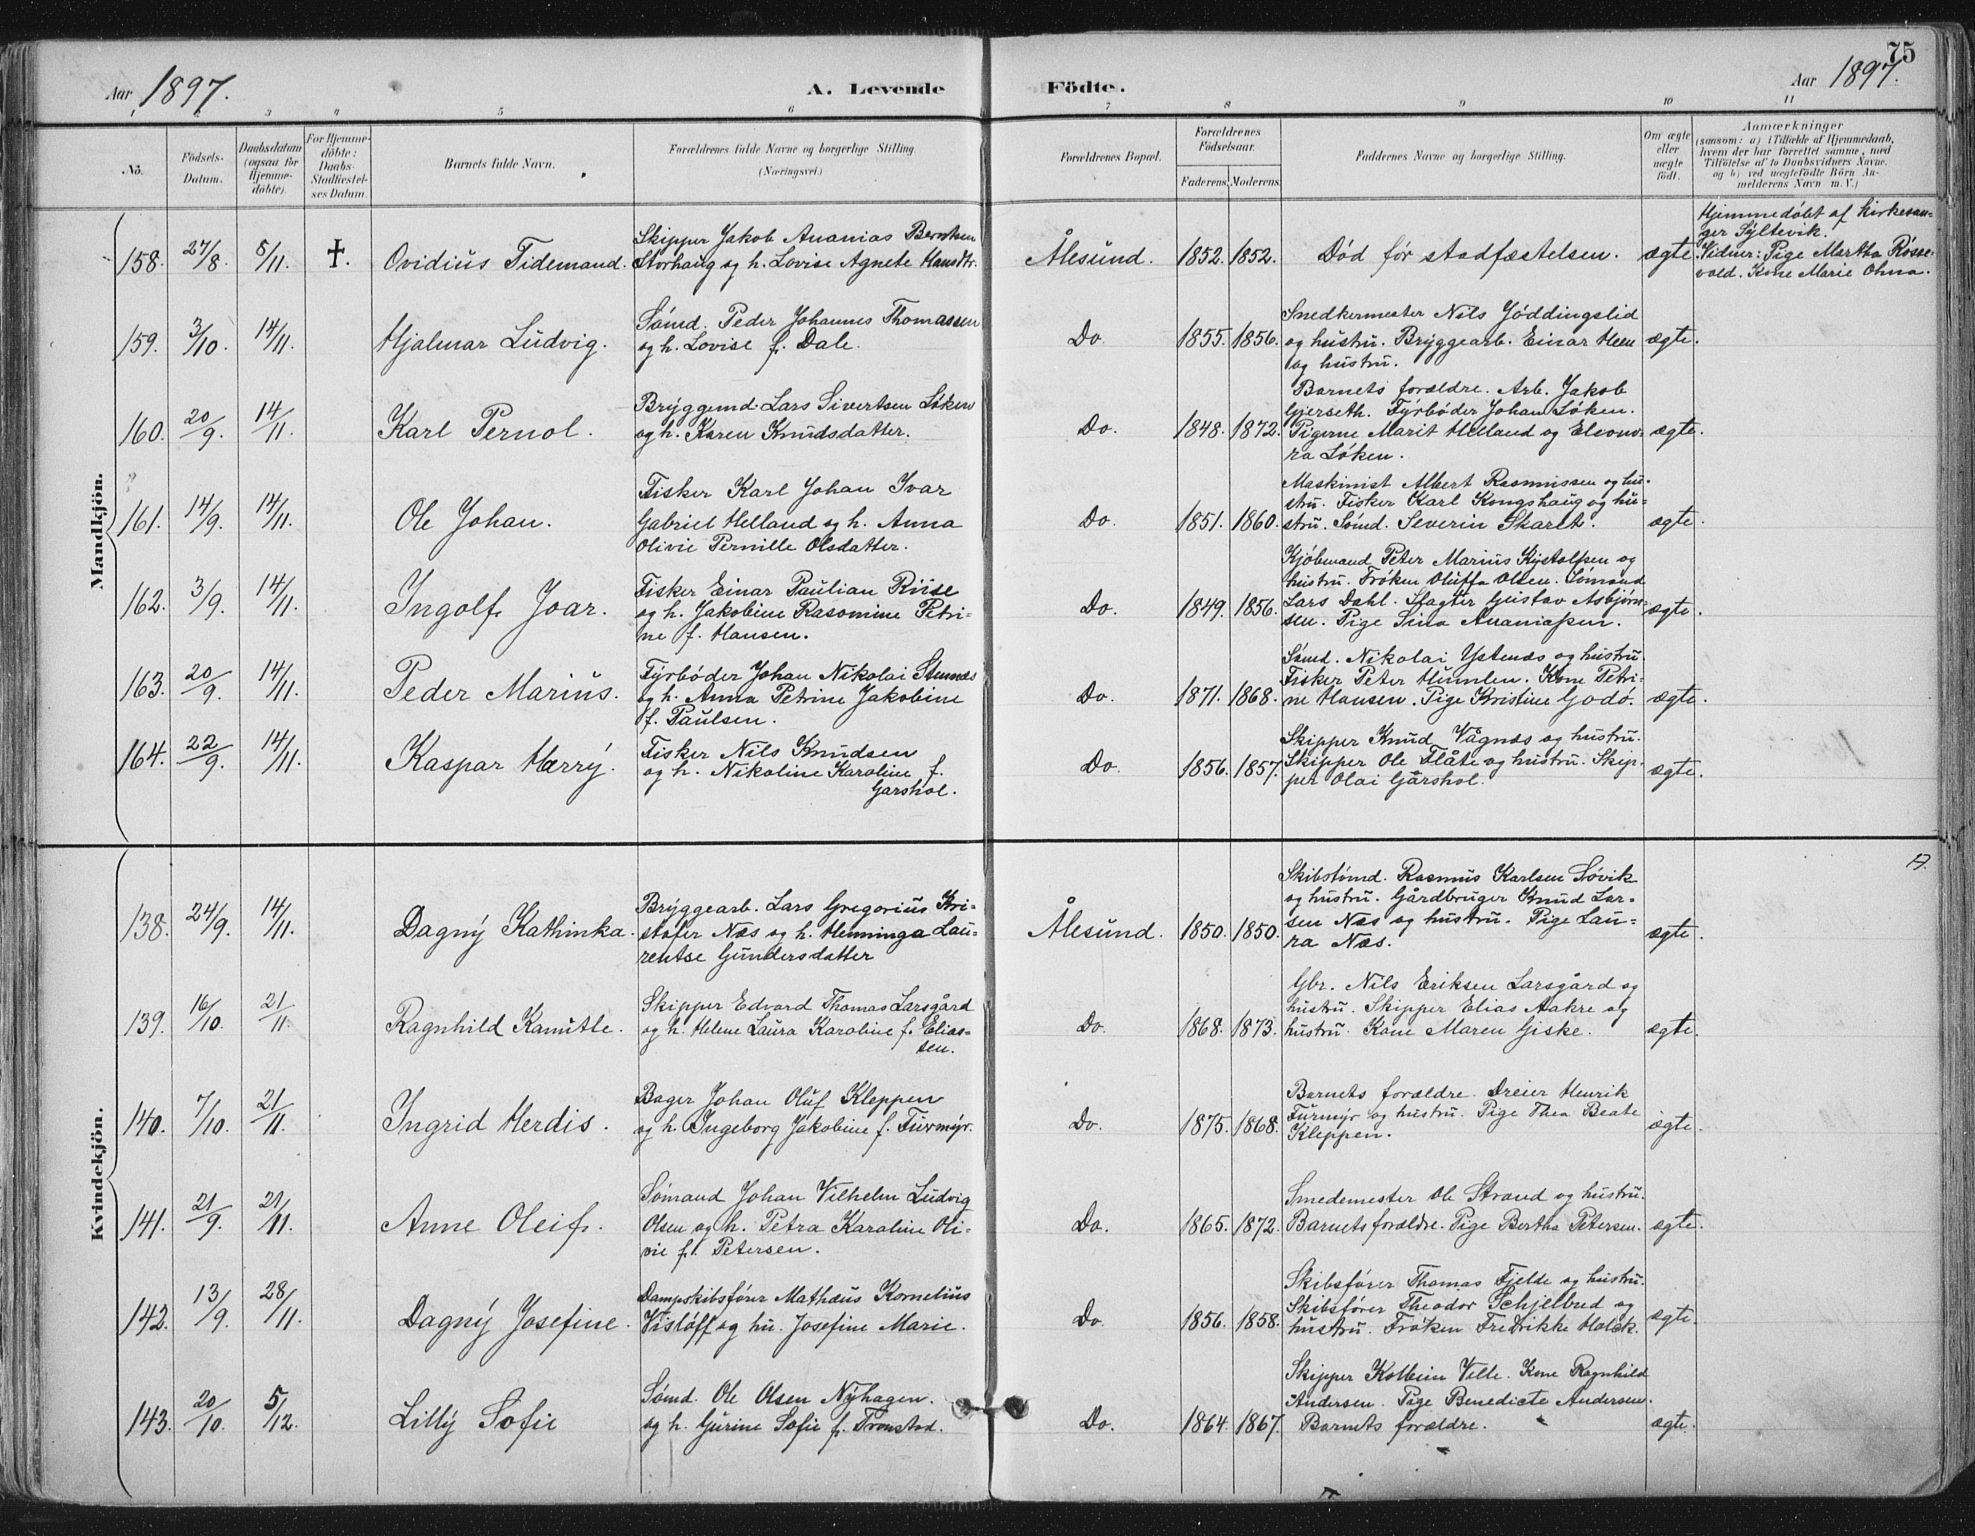 75
Aar 1897.
A. Levende
Födte.
Aar 1897.
1 2 3 4 5 6 7 8 9 10 11
No.
Födsels-
Datum.
Daabsdatum
(ogsaa for
Hjemme-
döbte).
For Hjemme-
döbte:
Daabs-
Stadfæstel-
ses Datum.
Barnets fulde Navn.
Forældrenes fulde Navne og borgerlige Stilling.
(Næringsvei.)
Forældrenes Bopæl.
Forældrenes
Födselsaar.
Faderens. Moderens.
Faddernes Navne og borgerlige Stilling.
Om ægte
eller
uægte
födt.
Anmærkninger
(saasom: a) i Tilfælde af Hjemmedaab,
hvem der har forrettet samme, med
Tilföielse af to Daabsvidners Navne,
og b) ved uægtefödte Börn An-
melderens Navn m. V.)
Mandkjön.
158. 27/8. 5/11. †. Ovidius Tidemand.
Skipper Jakob Ananias Berntsen
Storhaug og h. Lovise Agnete Hansdtr.
Ålesund. 1852. 1852. Død før stadfæstelsen. ægte.
Hjemmedøbt af kirkesan-
ger Syltevik.
Vidner: Pige Martha Røsse-
vold. Kone Marie Ohna.
159. 3/10. 14/11. Hjalmar Ludvig.
Sømd. Peder Johannes Thomassen
og h. Lovise f. Dale.
Do. 1855. 1856.
Snedkermester Nils Jøddingslid
og hustru. Bryggearb. Einar Heen
og hustru.
ægte.
160. 20/9. 14/11. Karl Pernol.
Bryggemd. Lars Sivertsen Løken
og h. Karen Knudsdatter.
Do. 1848. 1872.
Barnets forældre. Arb. Jakob
Gjerseth. Fyrbøder Johan Løken.
Pigerne Marit Helland og Eleono-
ra Løken.
ægte.
161. 14/9. 14/11. Ole Johan.
Fisker Karl Johan Ivar
Gabriel Helland og h. Anna
Olivie Pernille Olsdatter.
Do. 1851. 1860.
Maskinist Albert Rasmussen og hu-
stru. Fisker Karl Kongshaug og hu-
stru. Sømd. Severin Skaret.
ægte.
162. 3/9. 14/11. Ingolf Joar.
Fisker Einar Paulian Riise
og h. Jakobine Rasomine Petri-
ne f. Hansen.
Do. 1849. 1856.
Kjøbmand Peter Marius og
hustru. Frøken Oluffa Olsen. Sømand
Lars Dahl. Slagter Gustav Asbjørn-
sen. Pige Sina Ananiassen.
ægte.
163. 20/9. 14/11. Peder Marius.
Fyrbøder Johan Nikolai Stennæs
og h. Anna Petrine Jakobine
f. Paulsen.
Do. 1871. 1868.
Sømd. Nikolai Ystenæs og hustru.
Fisker Peter Humlen. Kone Petri-
ne Hansen. Pige Kristine Godø.
ægte.
164. 22/9. 14/11. Kaspar Harry.
Fisker Nils Knudsen
og h. Nikoline Karoline f.
Garshol.
Do. 1856. 1857.
Skipper Knud Vågnæs og hustru.
Skipper Ole Flåte og hustru. Skip-
per Olai Gårshol.
ægte.
Kvindekjön.
138. 24/9. 14/11. Dagny Kathinka.
Bryggearb. Lars Gregorius Kri-
stofer Næs og h. Henninga Lau-
rentse Gundersdatter
Ålesund. 1850. 1850.
Skibstømd. Rasmus Karlsen Søvik
og hustru. Gårdbruger Knud Lar-
sen Næs og hustru. Pige Lau-
ra Næs.
ægte.
139. 16/10. 21/11. Ragnhild Kamitle.
Skipper Edvard Thomas Larsgård
og h. Helene Laura Karoline f. Elias-
sen.
Do. 1868. 1873.
Gbr. Nils Eriksen Larsgård og
hustru. Skipper Elias Aakre og
hustru. Kone Maren Giske.
ægte.
140. 7/10. 21/11. Ingrid Herdis.
Bager Johan Oluf Kleppen
og h. Ingeborg Jakobine f. Furmyr.
Do. 1875. 1868.
Barnets forældre. Dreier Henrik
Furmyr og hustru. Pige Thea Beate
Kleppen.
ægte.
141. 21/9. 21/11. Anne Oleif.
Sømand Johan Vilhelm Ludvig
Olsen og h. Petra Karoline Oli-
vie f. Petersen.
Do. 1865. 1872.
Smedemester Ole Strand og hustru.
Barnets forældre. Pige Bertha Petersen.
ægte.
142. 13/9. 28/11. Dagny Josefine.
Dampskibsfører Mathæus Kornelius
Visløff og hu. Josefine Marie.
Do. 1856. 1858.
Skibsfører Thomas Fjelde og hustru.
Skibsfører Theodor Schjelbred og
hustru. Frøken Fredrikke Holck.
ægte.
143. 20/10. 5/12. Lilly Sofie
Sømd. Ole Olsen Nyhagen.
og h. Gurine Sofie f. Tronstad.
Do. 1864. 1867.
Skipper Kolbein Velle. Kone Ragnhild
Andersen. Pige Benedicte Andersen.
Barnets forældre.
ægte.